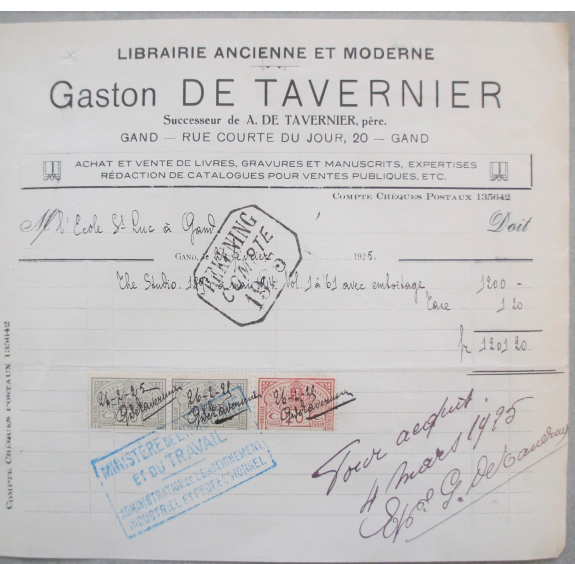 LIBRAIRIE ANCIENNE ET MODERNE
Gaston DE TAVERNIER
Successeur de A. DE TAVERNIER, père.
GAND — RUE COURTE DU JOUR, 20 — GAND
ACHAT ET VENTE DE LIVRES, GRAVURES ET MANUSCRITS, EXPERTISES
RÉDACTION DE CATALOGUES POUR VENTES PUBLIQUES, ETC.
COMPTE CHÈQUES POSTAUX 135642
M l'Ecole St Luc à Gand Doit
GAND, février 1925.
REKENING
COMPTE
The Studio. Vol. 1 à 61 avec emboitage 1200 -
Taxe 1 20
fr 1201 20
26-2-25 26-2-25 26-2-25
GdeTavernier GdeTavernier GdeTavernier
MINISTÈRE DE L'
ET DU TRAVAIL
ADMINISTRATION DE L'ENSEIGNEMENT
INDUSTRIEL ET PROFESSIONNEL
Pour acquit
4 mars 1925
G. de Tavernier
COMPTE CHÈQUES POSTAUX 135642